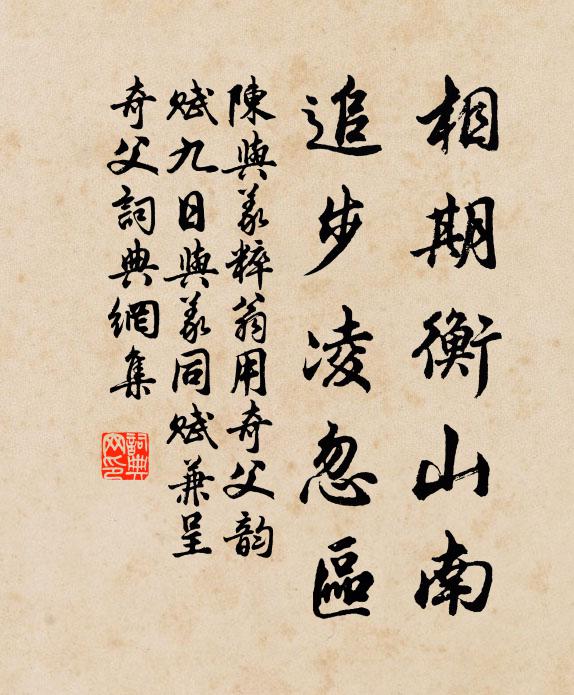 相期衡山南
追步凌忽區
陳與義粹翁用奇父韵
賦九日與義同賦兼呈
奇父詞典網集
詞典
网印